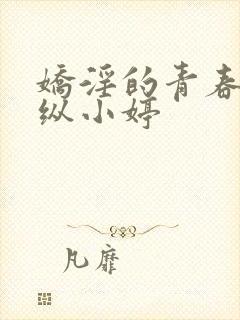 嬌淫的青春
纵小婷
凡靡